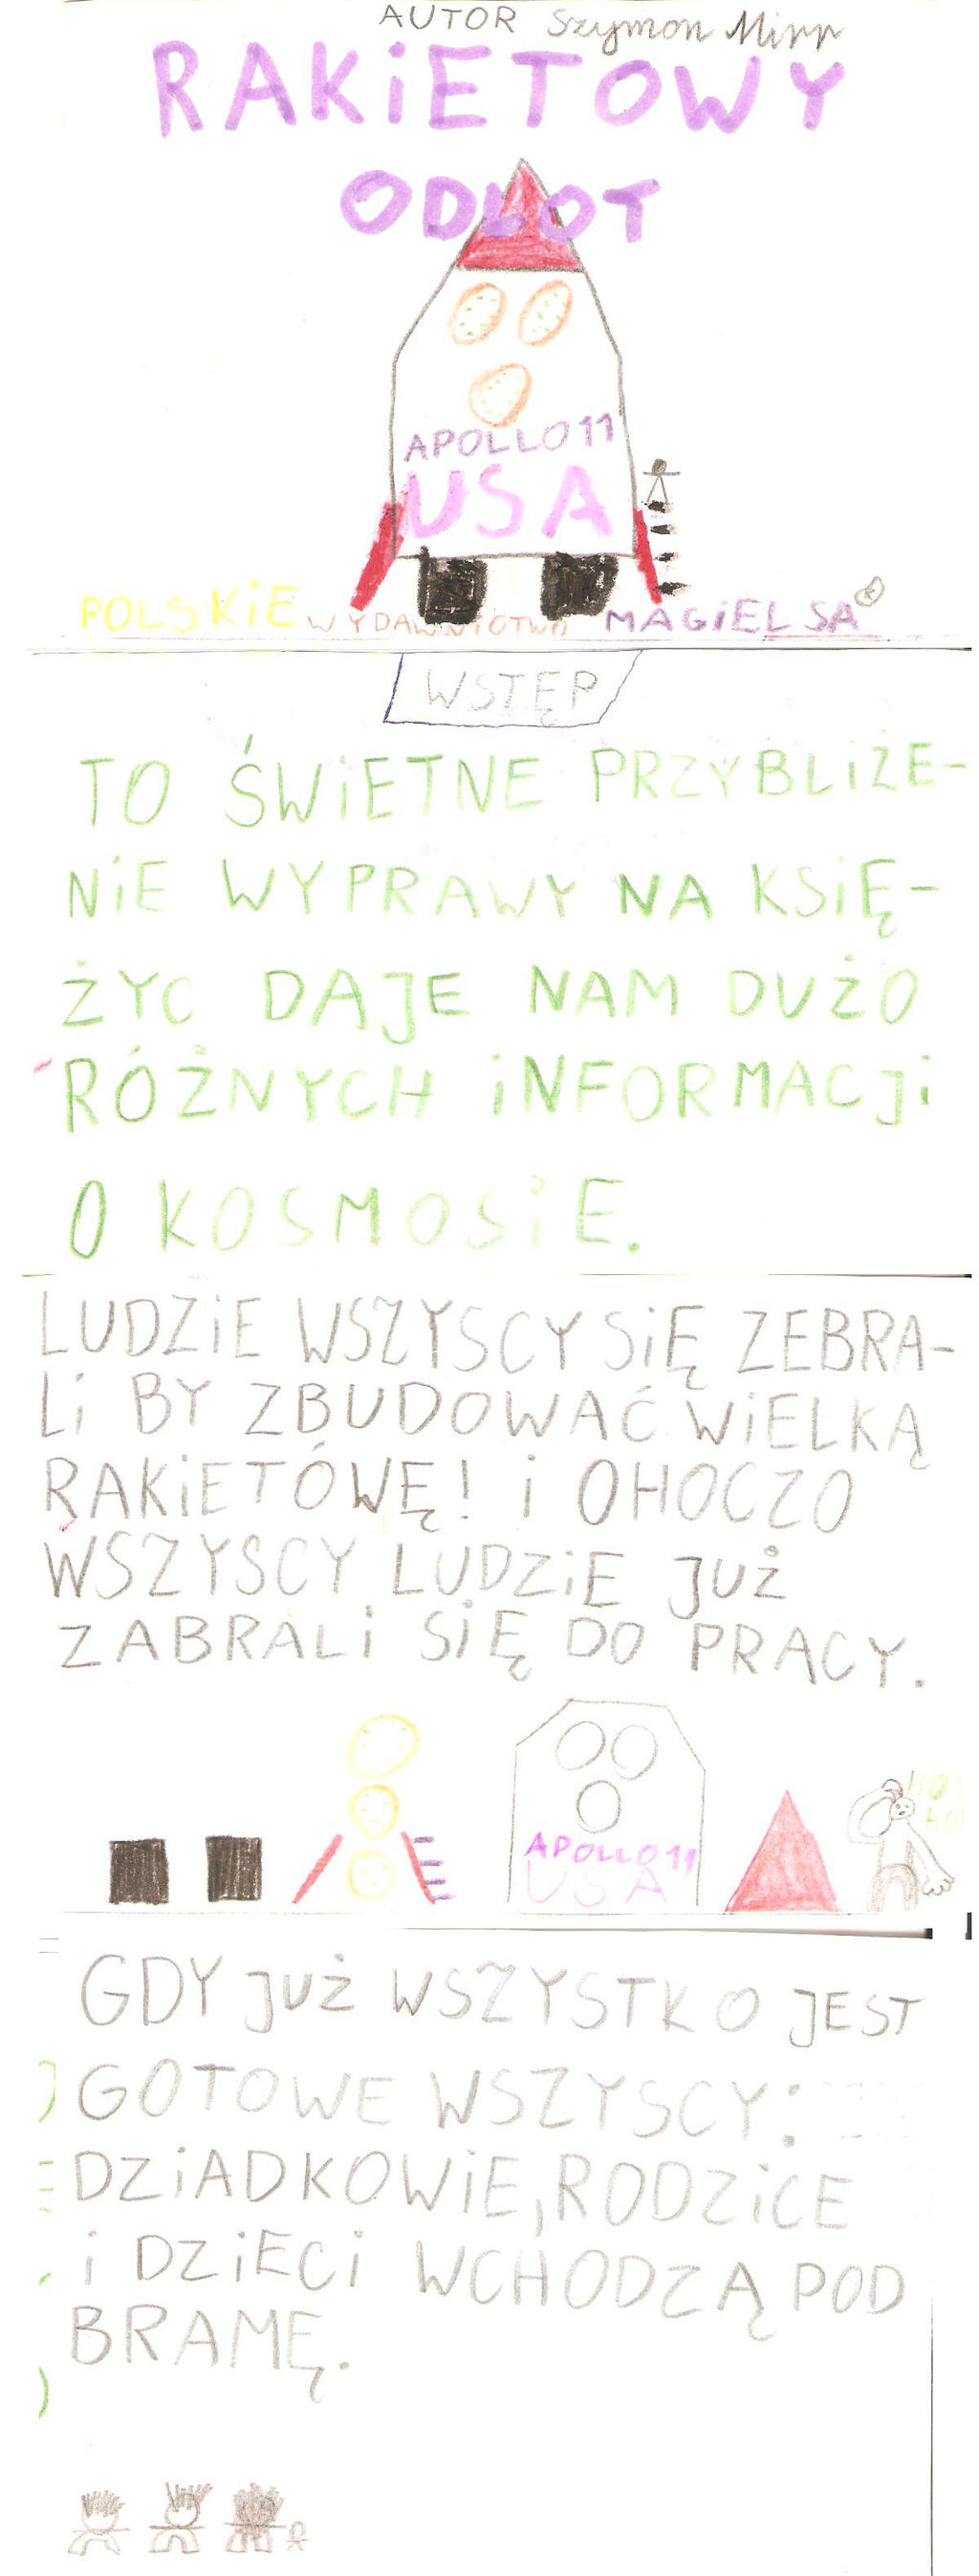 AUTOR Szymon Mirr
RAKiETOWY
ODLOT
APOLLO 11
USA
POLSKiE WYDAWNiOTWA MAGiEL SA
WSTĘP
TO ŚWiETNE PRZYBLiŻE-
NiE WYPRAWY NA KSiĘ-
ŻYC DAJE NAM DUŻO
RÓŻNYCH iNFORMACJi
O KOSMOSiE.
LUDZiE WSZYSCY SiĘ ZEBRA-
Li BY ZBUDOWAĆ WiELKĄ
RAKiETÓWĘ! i OHOCZO
WSZYSCY LUDZiE JUŻ
ZABRALi SiĘ DO PRACY.
APOLLO 11
USA
GDY JUŻ WSZYSTKO JEST
GOTOWE WSZYSCY:
DZiADKOWiE, RODZiCE
i DZiECi WCHODZĄ POD
BRAMĘ.